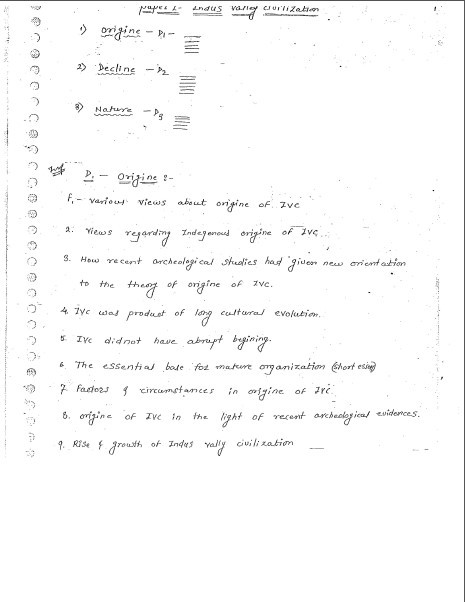 paper 1- Indus vally civilization
1) origine - D1 -
2) Decline - D2
3) Nature - D3
Imp D1 - Origine :-
F1 - various views about origine of IVC
2. views regarding Indegenous origine of IVC
3. How recent archeological studies had given new orientation
to the theory of origine of IVC.
4. IVC was product of long cultural evolution.
5. IVC did not have abrupt begining.
6. The essential base for mature organization (short essay)
7. factors & circumstances in origine of IVC
8. origine of IVC in the light of recent archeological evidences.
9. Rise & growth of Indus vally civilization